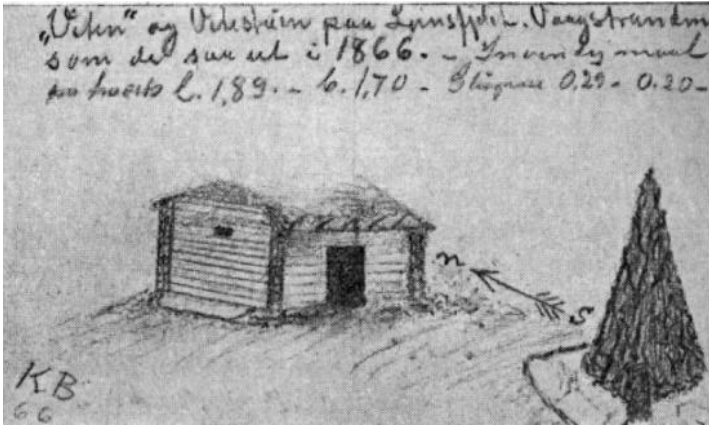 "Viten" og Vitestuen paa Leinsfjeld. Vaagstranden
som de saa ut i 1866. - Invendig maal
paa hvert l. 1,89. - b. 1,70 - Glugnue 0.29 - 0.20 -
n
s
KB
66